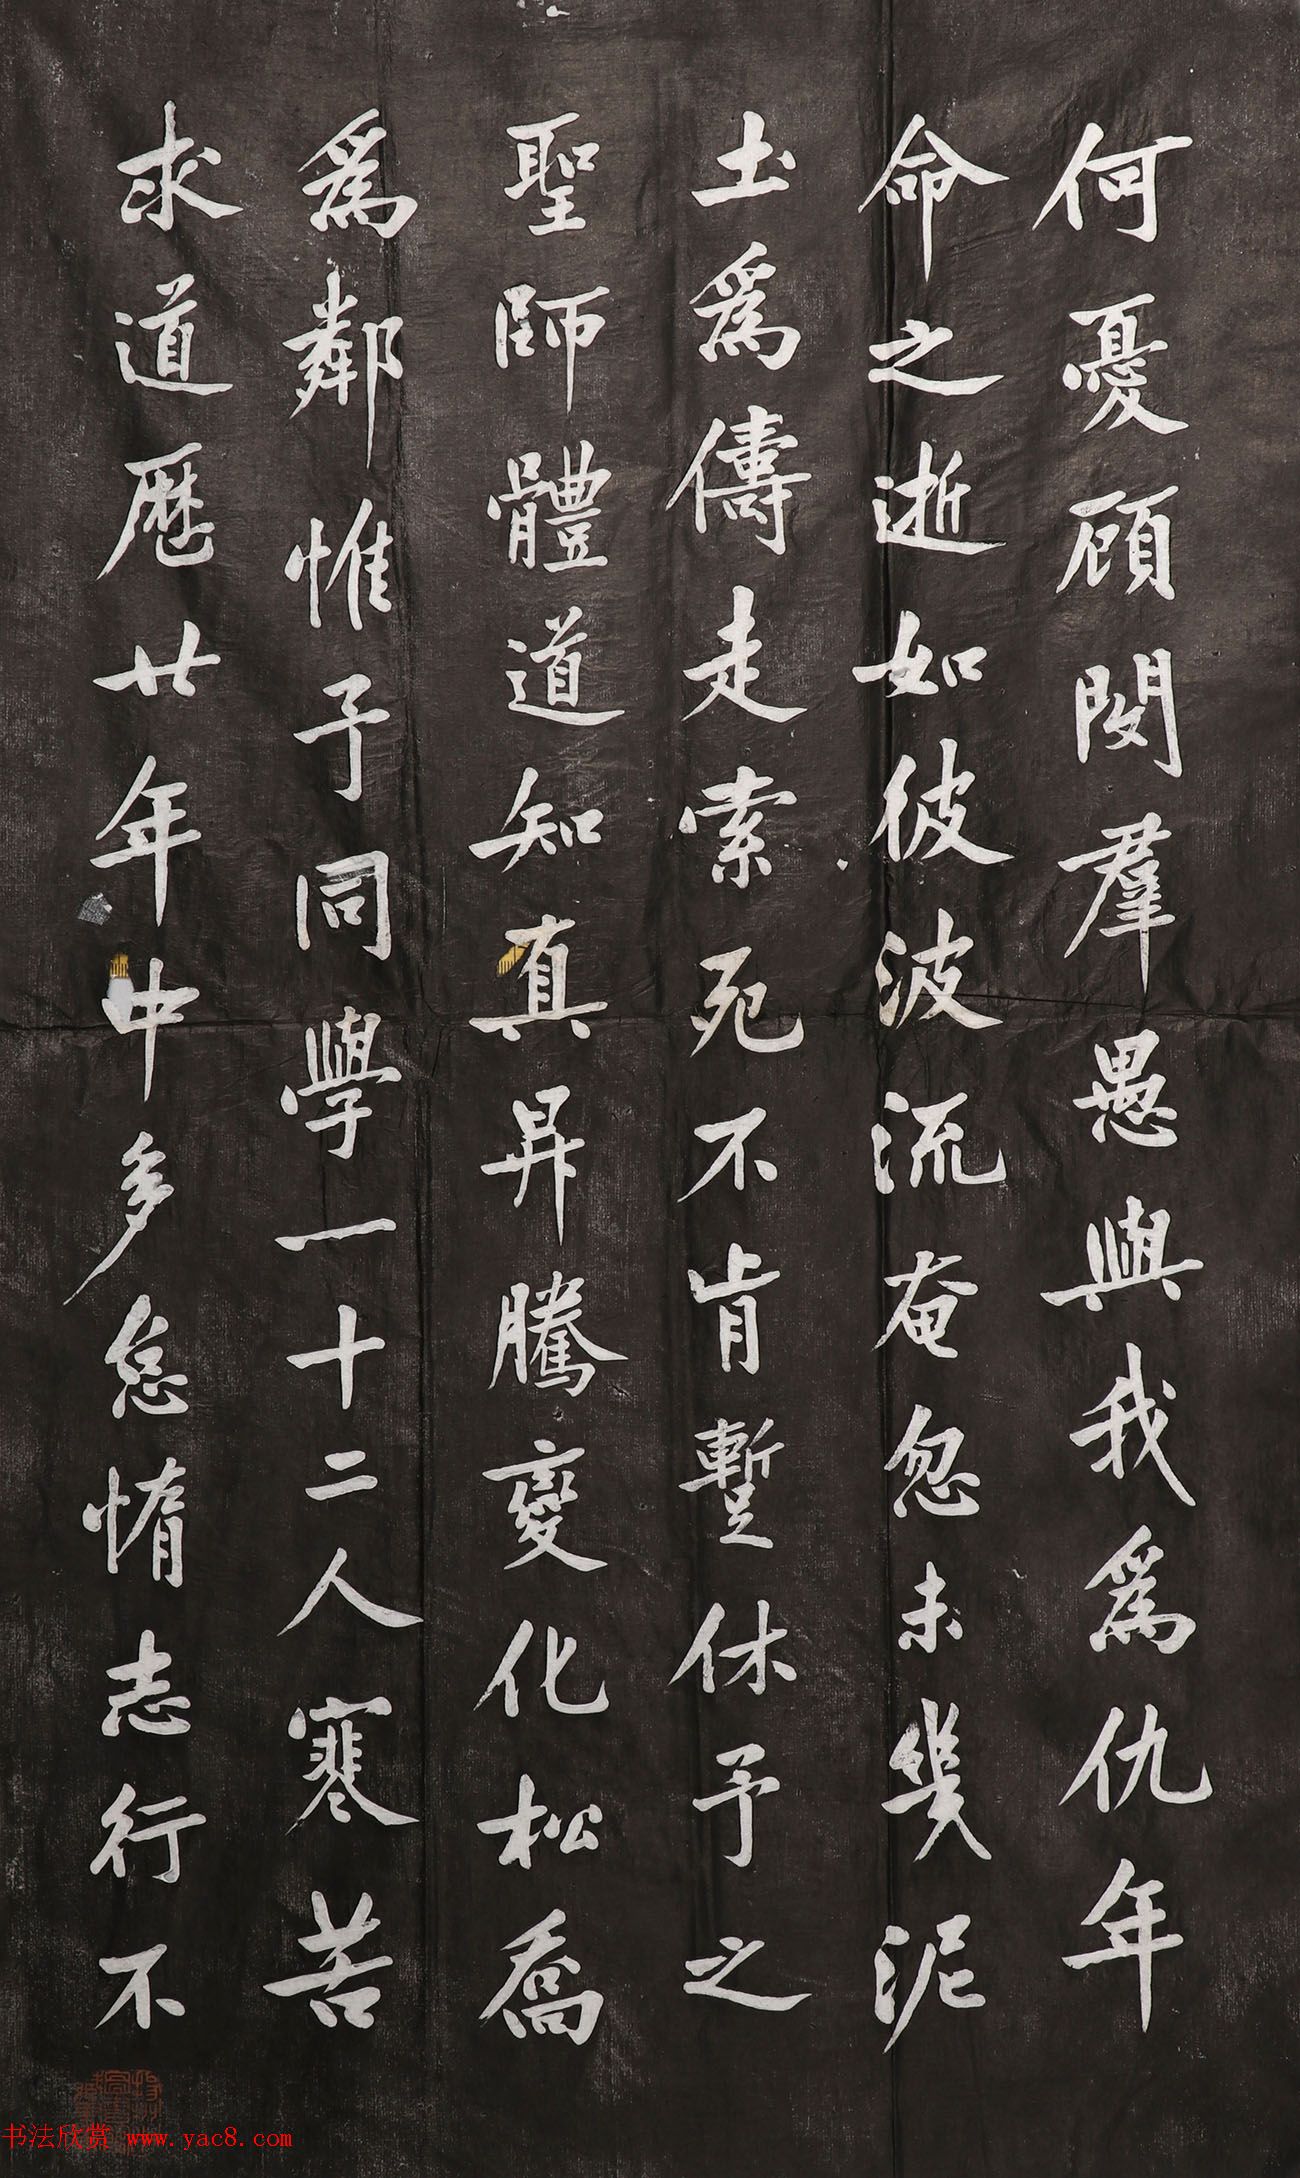 何憂顧閔羣愚與我爲仇年
命之逝如彼波流奄忽未幾泥
土爲儔走索死不肯暫休予之
聖師體道知真昇騰變化松喬
爲鄰惟予同學一十二人寒苦
求道歷廿年中多怠惰志行不
书法欣赏 www.yac8.com